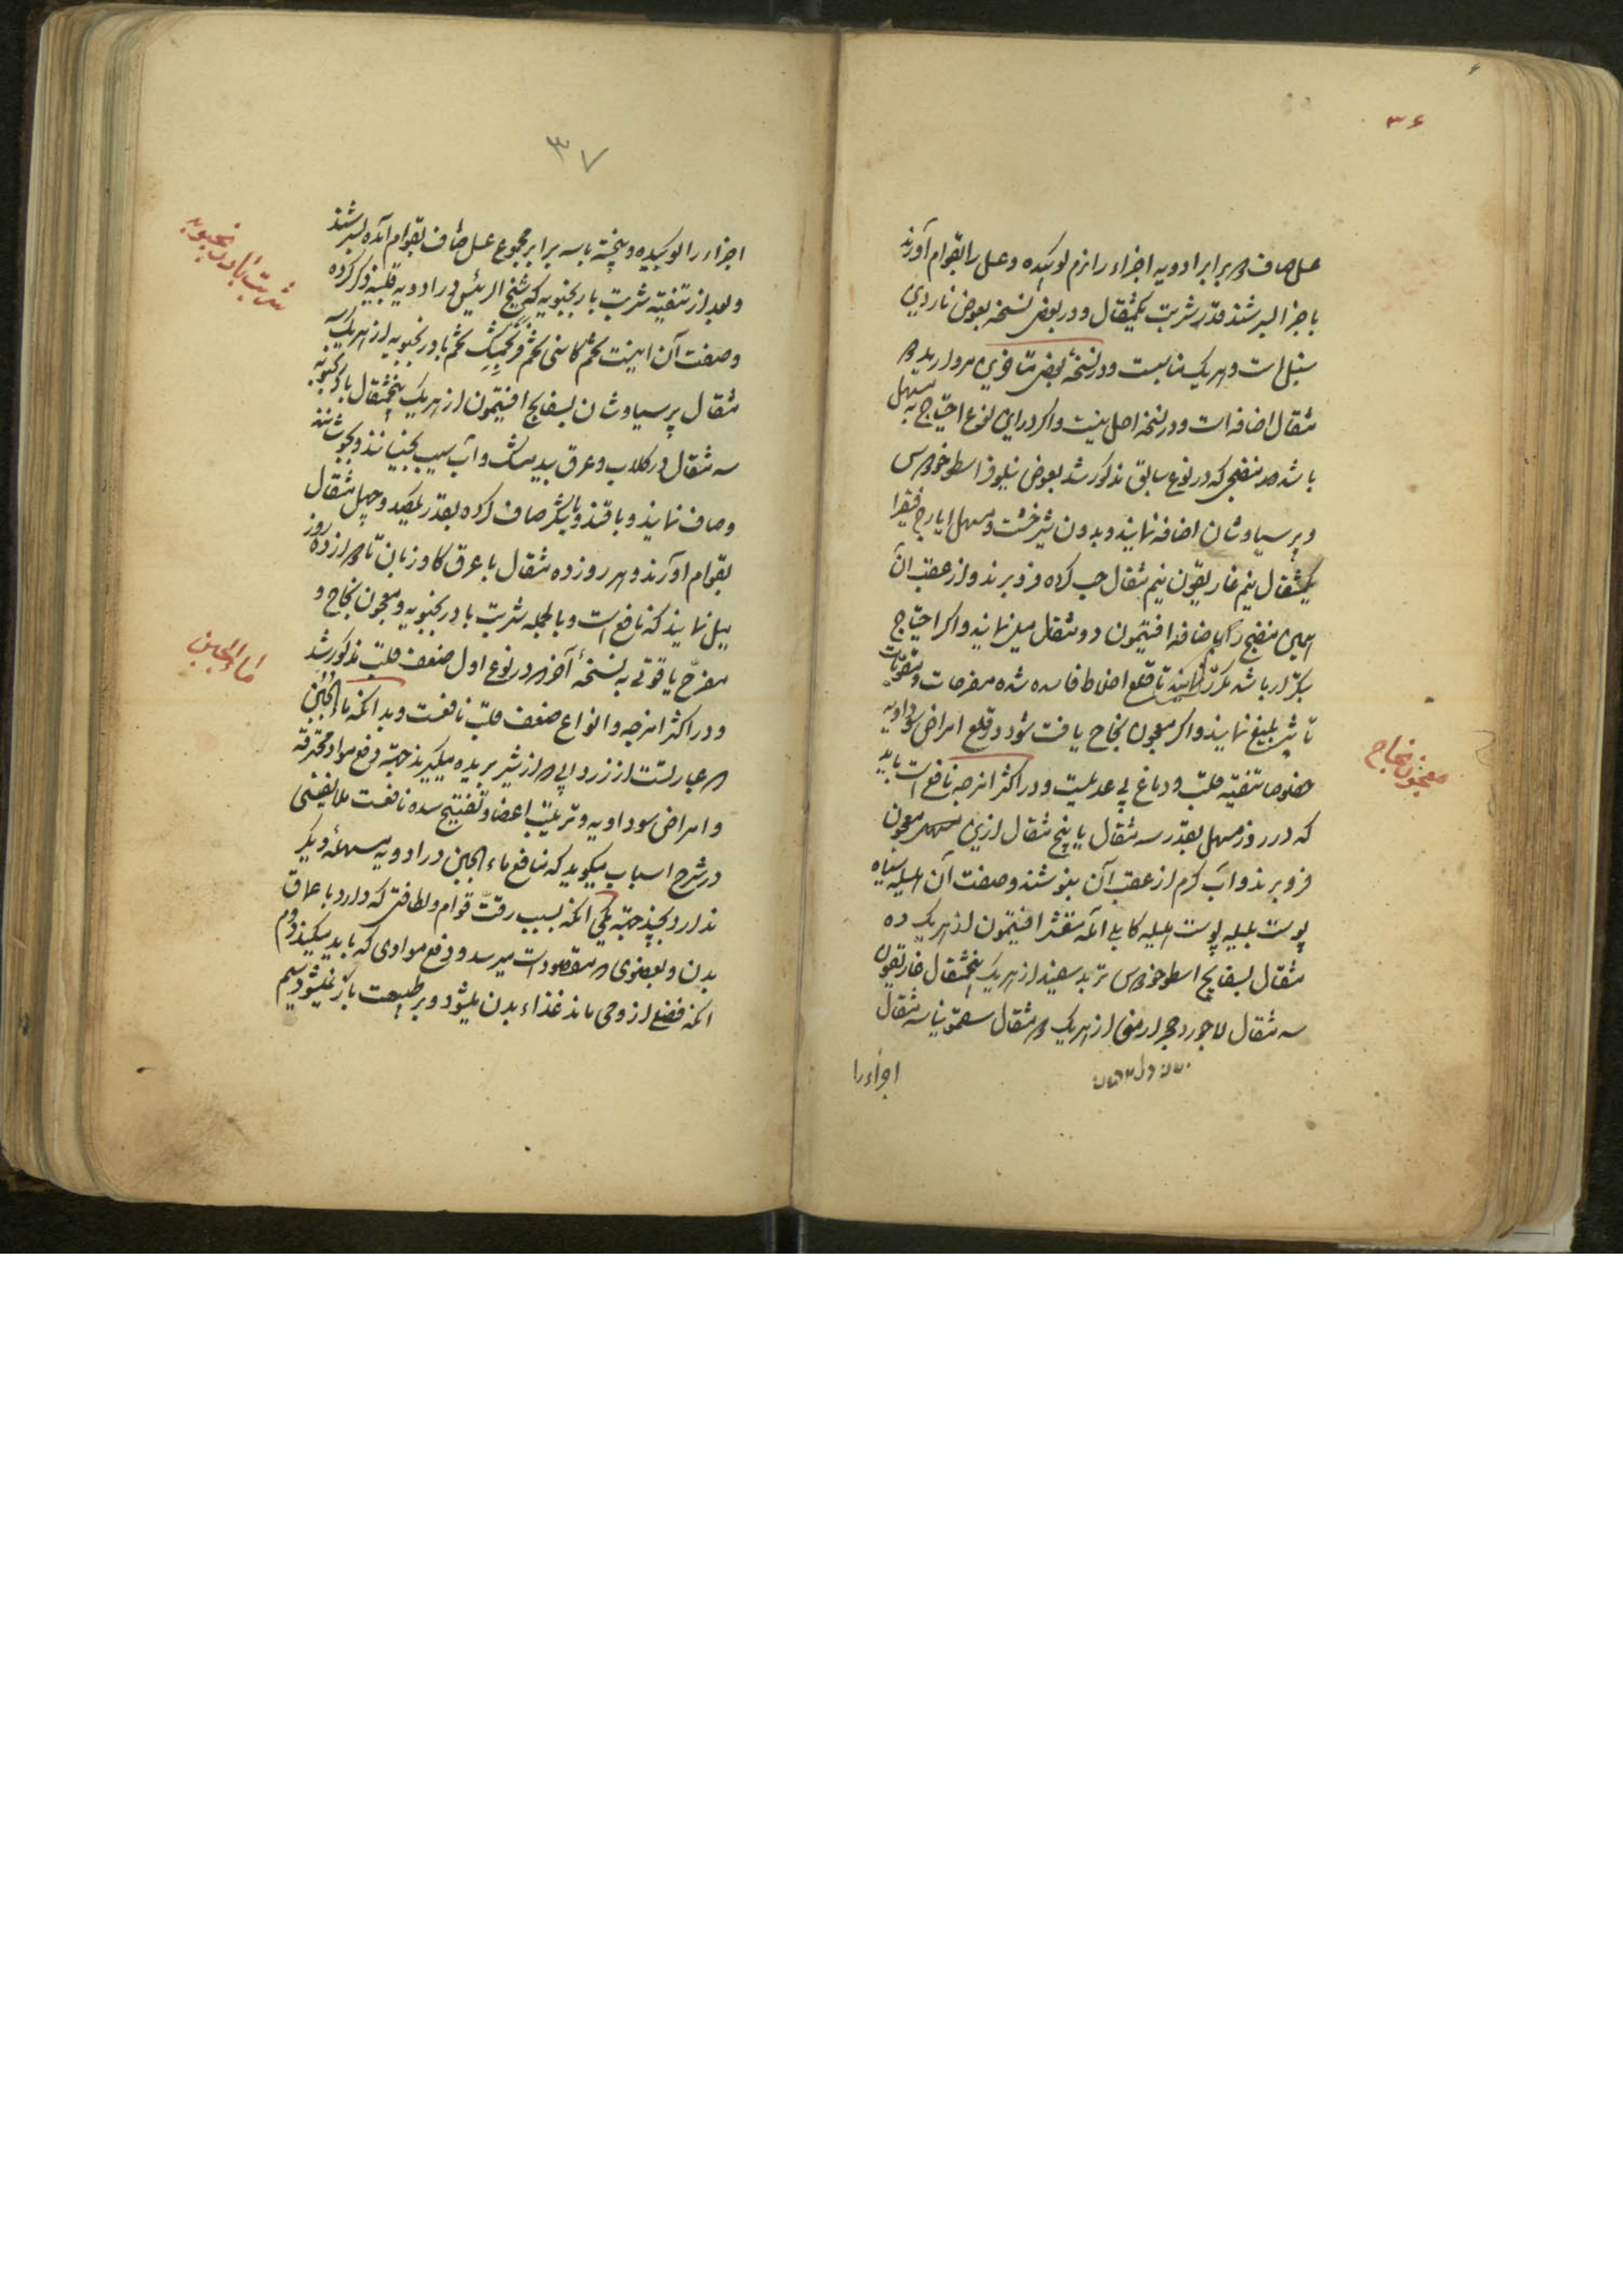 ۳۶
عسل صاف دو برابر ادویه اجزاء را نرم کوبیده و عسل را بقوام آورند
با جزا بسرشند قدر شربت یکمثقال و در بعض نسخه بعوض ناردین
سنبل است و هر یک مناسبست و در نسخهٔ بعض متاخرین مروارید دو
مثقال اضافه است و در نسخه اصل نیست و اگر در این نوع احتیاج به مسهل
باشد منضجی که در نوع سابق مذکور شد بعوض نیلوفر اسطوخودوس
و پرسیاوشان اضافه نمایند و بدون شیرخشت و مسهل ایارج فیقرا
یکمثقال نیم غاریقون نیم مثقال حب کرده فرو برند و از عقب آن
همین منضج را باضافه افتیمون دو مثقال میل نمایند و اگر احتیاج
بتکرار باشد مکرر نمایند تا قلع اخلاط فاسده شده مفرحات و مقویات
تاثیر بلیغ نمایند و اگر معجون نجاح یافت شود در قلع امراض سوداویه
خصوصا تنقیه قلب و دماغ بی عدیلست و در اکثر امزجه نافع است باید
که در روز مسهل بقدر سه مثقال یا پنج مثقال ازین معجون
فرو برند و آب گرم از عقب آن بنوشند و صفت آن هلیله سیاه
پوست بلیله پوست هلیله کابلی آمله مقشر افتیمون از هر یک ده
مثقال بسفایج اسطوخودوس تربد سفید از هر یک پنجمثقال غاریقون
سه مثقال لاجورد حجر ارمنی از هر یک دو مثقال سقمونیا سه مثقال
اجزاء را
معجون نجاح
۳۷
اجزاء را کوبیده و بیخته با سه برابر مجموع عسل صاف بقوام آمده بسرشند
و بعد از تنقیه شربت بادرنجبویه که شیخ الرئیس در ادویه قلبیه ذکر کرده
و صفت آن اینست تخم کاسنی تخم فرنجمشک تخم بادرنجبویه از هر یک سه
مثقال پرسیاوشان بسفایج افتیمون از هر یک پنجمثقال بادرنجبویه
سه مثقال در گلاب و عرق بیدمشک و آب سیب بخیسانند و بجوشانند
و صاف نمایند و با قند و یا شکر صاف کرده بقدر یکصد و چهل مثقال
بقوام آورند و هر روز ده مثقال با عرق گاوزبان تا دوازده روز
میل نمایند که نافع است و بالجمله شربت بادرنجبویه و معجون نجاح و
مفرح یاقوتی به نسخهٔ آخر که در نوع اول ضعف قلب مذکور شد
و در اکثر امزجه و انواع ضعف قلب نافعست و بدانکه ماء الجبن
که عبارتست از زرد آبی که از شیر بریده میگیرند جهة دفع مواد محترقه
و امراض سوداویه و ترطیب اعضا و تفتیح سده نافعست ملا نفیس
در شرح اسباب میگوید که منافع ماء الجبن در ادویه مسهله دیگر
ندارد بچند جهة یکی آنکه بسبب رقت قوام و لطافتی که دارد با عماق
بدن و بعضوی که مقصود است میرسد و دفع موادی که باید میکند دوم
آنکه فضل از وی ماند غذاء بدن میشود و بر طبیعت بار نمیشود سیم
شربت بادرنجبویه
ماء الجبن